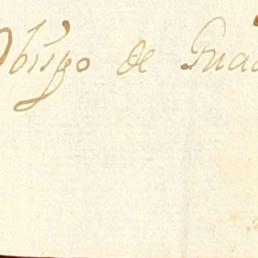 Obispo de Guad